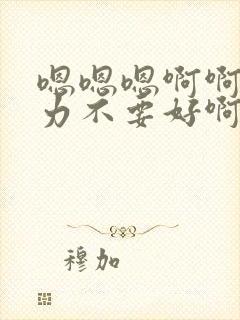 嗯嗯嗯啊啊
力不要好啊
穆加